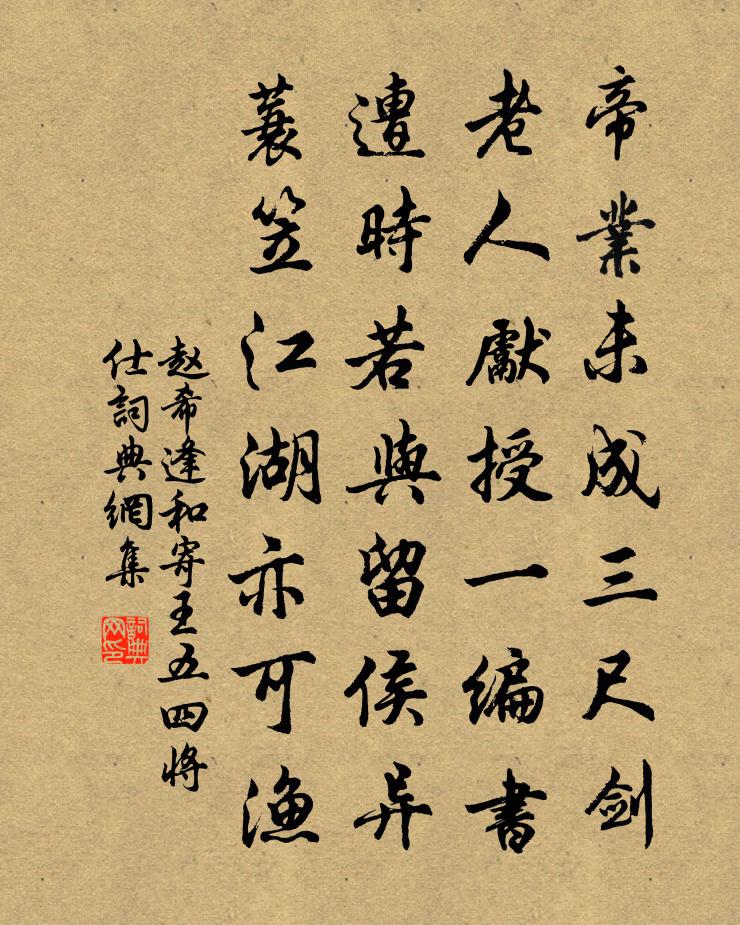 帝業未成三尺劍
老人獻授一编書
遭時若與留侯异
蓑笠江湖亦可漁
赵希逢和寄王五四將
仕詞典網集
詞典網印